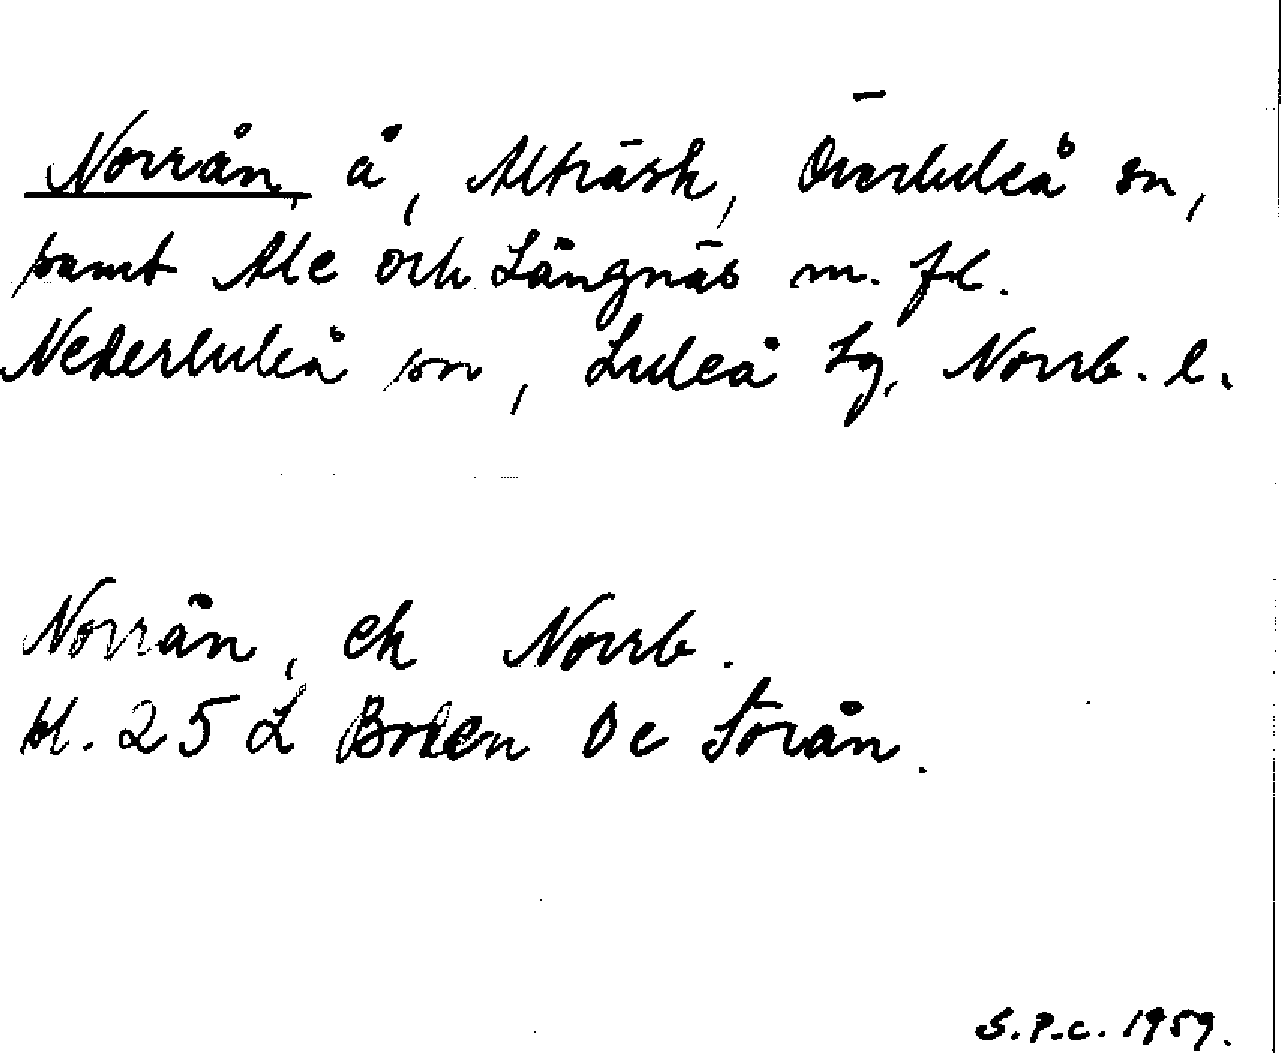 Norrån, å, Alträsk, Överluleå sn,
samt Ale och Långnäs m. fl.
Nederluleå sn, Luleå tg, Norrb. l.
Norrån, ek Norrb.
bl. 25 L Boden Öe Sörån.
S.P.C. 1959.